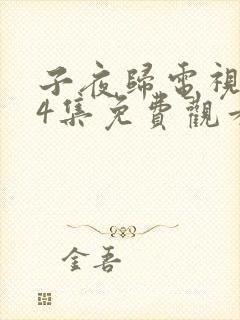 子夜歸電視
4集免費觀
金吾